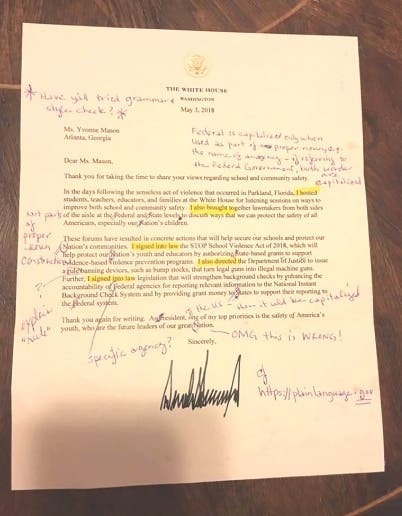 THE WHITE HOUSE
WASHINGTON
* Have y'all tried grammar &
style check? *
May 3, 2018
Ms. Yvonne Mason
Atlanta, Georgia
Federal is capitalized only when
used as part of a proper noun, e.g.
the name of an agency - if referring to
the Federal Government, both words
are
capitalized
Dear Ms. Mason,
Thank you for taking the time to share your views regarding school and community safety.
In the days following the senseless act of violence that occurred in Parkland, Florida, I hosted
students, teachers, educators, and families at the White House for listening sessions on ways to
improve both school and community safety. I also brought together lawmakers from both sides
of the aisle at the Federal and State levels to discuss ways that we can protect the safety of all
Americans, especially our Nation's children.
not part
of
proper
noun
construction
These forums have resulted in concrete actions that will help secure our schools and protect our
Nation's communities. I signed into law the STOP School Violence Act of 2018, which will
help protect our Nation's youth and educators by authorizing State-based grants to support
evidence-based violence prevention programs. I also directed the Department of Justice to issue
a rule banning devices, such as bump stocks, that turn legal guns into illegal machine guns.
Further, I signed into law legislation that will strengthen background checks by enhancing the
accountability of Federal agencies for reporting relevant information to the National Instant
Background Check System and by providing grant money to States to support their reporting to
the Federal system.
?
explain
"rule"
of the US - then it would be capitalized
Thank you again for writing. As President, one of my top priorities is the safety of America's
youth, who are the future leaders of our great Nation.
OMG this is WRONG!
Sincerely,
specific agency?
https://plainlanguage.gov